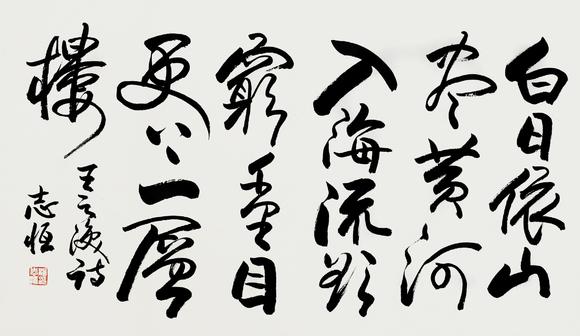 白日依山
尽黄河
入海流欲
窮千里目
更上一層
樓
王之渙詩
志恒